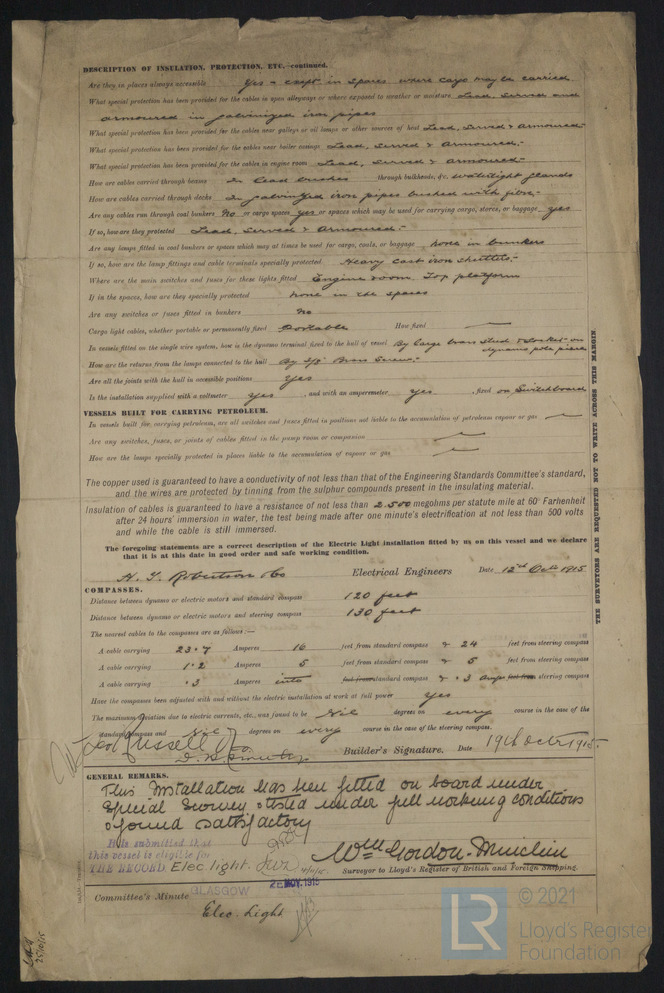 DESCRIPTION OF INSULATION, PROTECTION, ETC.—continued.
Are they in places always accessible Yes - except in spaces where cargo may be carried
What special protection has been provided for the cables in open alleyways or where exposed to weather or moisture Lead, served and
armoured in galvinized iron pipes
What special protection has been provided for the cables near galleys or oil lamps or other sources of heat Lead, served & armoured
What special protection has been provided for the cables near boiler casings Lead, served & armoured.
What special protection has been provided for the cables in engine room Lead, served & armoured
How are cables carried through beams In lead bushes through bulkheads, &c. Watertight glands
How are cables carried through decks In galvinized iron pipes bushed with fibre
Are any cables run through coal bunkers No or cargo spaces yes or spaces which may be used for carrying cargo, stores, or baggage yes
If so, how are they protected Lead, served & armoured
Are any lamps fitted in coal bunkers or spaces which may at times be used for cargo, coals, or baggage none in bunkers
If so, how are the lamp fittings and cable terminals specially protected Heavy cast iron shutters
Where are the main switches and fuses for these lights fitted Engine room Top platform
If in the spaces, how are they specially protected none in the spaces
Are any switches or fuses fitted in bunkers no
Cargo light cables, whether portable or permanently fixed Portable How fixed
In vessels fitted on the single wire system, how is the dynamo terminal fixed to the hull of vessel By large brass stud on
dynamo pole piece
How are the returns from the lamps connected to the hull By 3/8" Brass Screws
Are all the joints with the hull in accessible positions Yes
Is the installation supplied with a voltmeter yes , and with an amperemeter yes , fixed on Switchboard
VESSELS BUILT FOR CARRYING PETROLEUM.
In vessels built for carrying petroleum, are all switches and fuses fitted in positions not liable to the accumulation of petroleum vapour or gas
Are any switches, fuses, or joints of cables fitted in the pump room or companion
How are the lamps specially protected in places liable to the accumulation of vapour or gas
The copper used is guaranteed to have a conductivity of not less than that of the Engineering Standards Committee's standard,
and the wires are protected by tinning from the sulphur compounds present in the insulating material.
Insulation of cables is guaranteed to have a resistance of not less than 2500 megohms per statute mile at 60° Farhenheit
after 24 hours' immersion in water, the test being made after one minute's electrification at not less than 500 volts
and while the cable is still immersed.
The foregoing statements are a correct description of the Electric Light installation fitted by us on this vessel and we declare
that it is at this date in good order and safe working condition.
H. T. Robertson & Co Electrical Engineers Date 12th Oct. 1915
COMPASSES.
Distance between dynamo or electric motors and standard compass 120 feet
Distance between dynamo or electric motors and steering compass 130 feet
The nearest cables to the compasses are as follows:—
A cable carrying 23.7 Amperes 16 feet from standard compass & 24 feet from steering compass
A cable carrying 1.2 Amperes 5 feet from standard compass & 5 feet from steering compass
A cable carrying .3 Amperes into feet from standard compass & .3 amps feet from steering compass
Have the compasses been adjusted with and without the electric installation at work at full power Yes
The maximum deviation due to electric currents, etc., was found to be Nil degrees on every course in the case of the
standard compass and Nil degrees on every course in the case of the steering compass.
Russell & Co.
Builder's Signature. Date 19th Octr 1915.
GENERAL REMARKS.
This Installation has been fitted on board under
Special Survey tested under full working conditions
& found satisfactory
It is submitted that
this vessel is eligible for
THE RECORD Elec light.
Wm Gordon-Muclin
Surveyor to Lloyd's Register of British and Foreign Shipping.
GLASGOW
2 NOV. 1915
Committee's Minute
Elec. Light
THE SURVEYORS ARE REQUESTED NOT TO WRITE ACROSS THIS MARGIN.
25/10/15
LR
© 2021
Lloyd's Register
Foundation